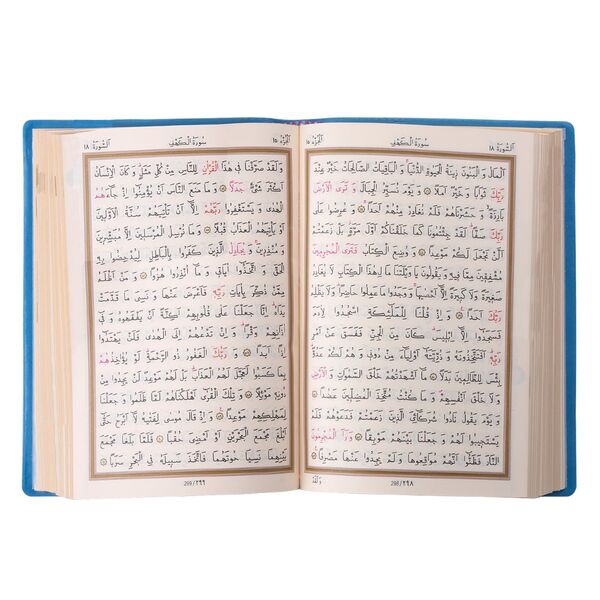 اَلْجُزْءُ ١٥ سُورَةُ الْكَهْفِ اَلسُّورَةُ ١٨
اَلْمَالُ وَ الْبَنُونَ زِينَةُ الْحَيٰوةِ الدُّنْيَا وَ الْبَاقِيَاتُ الصَّالِحَاتُ خَيْرٌ عِنْدَ
رَبِّكَ ثَوَابًا وَ خَيْرٌ اَمَلًا وَ يَوْمَ نُسَيِّرُ الْجِبَالَ وَ تَرَى الْاَرْضَ
بَارِزَةً وَ حَشَرْنَاهُمْ فَلَمْ نُغَادِرْ مِنْهُمْ اَحَدًا وَ عُرِضُوا عَلٰى
رَبِّكَ صَفًّا لَقَدْ جِئْتُمُونَا كَمَا خَلَقْنَاكُمْ اَوَّلَ مَرَّةٍ بَلْ زَعَمْتُمْ
اَلَّنْ نَجْعَلَ لَكُمْ مَوْعِدًا وَ وُضِعَ الْكِتَابُ فَتَرَى الْمُجْرِمِينَ
مُشْفِقِينَ مِمَّا فِيهِ وَ يَقُولُونَ يَا وَيْلَتَنَا مَا لِهٰذَا الْكِتَابِ لَا يُغَادِرُ
صَغِيرَةً وَ لَا كَبِيرَةً اِلَّا اَحْصٰيهَا وَ وَجَدُوا مَا عَمِلُوا حَاضِرًا وَ لَا يَظْلِمُ
رَبُّكَ اَحَدًا وَ اِذْ قُلْنَا لِلْمَلٰٓئِكَةِ اسْجُدُوا لِاٰدَمَ
فَسَجَدُوا اِلَّا اِبْلِيسَ كَانَ مِنَ الْجِنِّ فَفَسَقَ عَنْ اَمْرِ
رَبِّهِ اَفَتَتَّخِذُونَهُ وَ ذُرِّيَّتَهُ اَوْلِيَاءَ مِنْ دُونِي وَ هُمْ لَكُمْ عَدُوٌّ
بِئْسَ لِلظَّالِمِينَ بَدَلًا مَا اَشْهَدْتُهُمْ خَلْقَ السَّمٰوَاتِ وَ الْاَرْضِ
وَ لَا خَلْقَ اَنْفُسِهِمْ وَ مَا كُنْتُ مُتَّخِذَ الْمُضِلِّينَ عَضُدًا
وَ يَوْمَ يَقُولُ نَادُوا شُرَكَائِيَ الَّذِينَ زَعَمْتُمْ فَدَعَوْهُمْ فَلَمْ
يَسْتَجِيبُوا لَهُمْ وَ جَعَلْنَا بَيْنَهُمْ مَوْبِقًا وَ رَاَ الْمُجْرِمُونَ
النَّارَ فَظَنُّوا اَنَّهُمْ مُوَاقِعُوهَا وَ لَمْ يَجِدُوا عَنْهَا مَصْرِفًا
298/٢٩٨ وَ لَقَدْ
اَلْجُزْءُ ١٥ سُورَةُ الْكَهْفِ اَلسُّورَةُ ١٨
وَ لَقَدْ صَرَّفْنَا فِي هٰذَا الْقُرْاٰنِ لِلنَّاسِ مِنْ كُلِّ مَثَلٍ وَ كَانَ الْاِنْسَانُ
اَكْثَرَ شَيْءٍ جَدَلًا وَ مَا مَنَعَ النَّاسَ اَنْ يُؤْمِنُوا اِذْ جَاءَهُمُ
الْهُدٰى وَ يَسْتَغْفِرُوا رَبَّهُمْ اِلَّا اَنْ تَأْتِيَهُمْ سُنَّةُ الْاَوَّلِينَ
اَوْ يَأْتِيَهُمُ الْعَذَابُ قُبُلًا وَ مَا نُرْسِلُ الْمُرْسَلِينَ اِلَّا مُبَشِّرِينَ
وَ مُنْذِرِينَ وَ يُجَادِلُ الَّذِينَ كَفَرُوا بِالْبَاطِلِ لِيُدْحِضُوا بِهِ
الْحَقَّ وَ اتَّخَذُوا اٰيَاتِي وَ مَا اُنْذِرُوا هُزُوًا وَ مَنْ اَظْلَمُ
مِمَّنْ ذُكِّرَ بِاٰيَاتِ رَبِّهِ فَاَعْرَضَ عَنْهَا وَ نَسِيَ مَا قَدَّمَتْ
يَدَاهُ اِنَّا جَعَلْنَا عَلٰى قُلُوبِهِمْ اَكِنَّةً اَنْ يَفْقَهُوهُ وَ فِي
اٰذَانِهِمْ وَقْرًا وَ اِنْ تَدْعُهُمْ اِلَى الْهُدٰى فَلَنْ يَهْتَدُوا
اِذًا اَبَدًا وَ رَبُّكَ الْغَفُورُ ذُو الرَّحْمَةِ لَوْ يُؤَاخِذُهُمْ
بِمَا كَسَبُوا لَعَجَّلَ لَهُمُ الْعَذَابَ بَلْ لَهُمْ مَوْعِدٌ لَنْ يَجِدُوا مِنْ
دُونِهِ مَوْئِلًا وَ تِلْكَ الْقُرٰى اَهْلَكْنَاهُمْ لَمَّا ظَلَمُوا وَ جَعَلْنَا
لِمَهْلِكِهِمْ مَوْعِدًا وَ اِذْ قَالَ مُوسٰى لِفَتٰيهُ لَا اَبْرَحُ حَتّٰى
اَبْلُغَ مَجْمَعَ الْبَحْرَيْنِ اَوْ اَمْضِيَ حُقُبًا فَلَمَّا بَلَغَا مَجْمَعَ
بَيْنِهِمَا نَسِيَا حُوتَهُمَا فَاتَّخَذَ سَبِيلَهُ فِي الْبَحْرِ سَرَبًا
299/٢٩٩